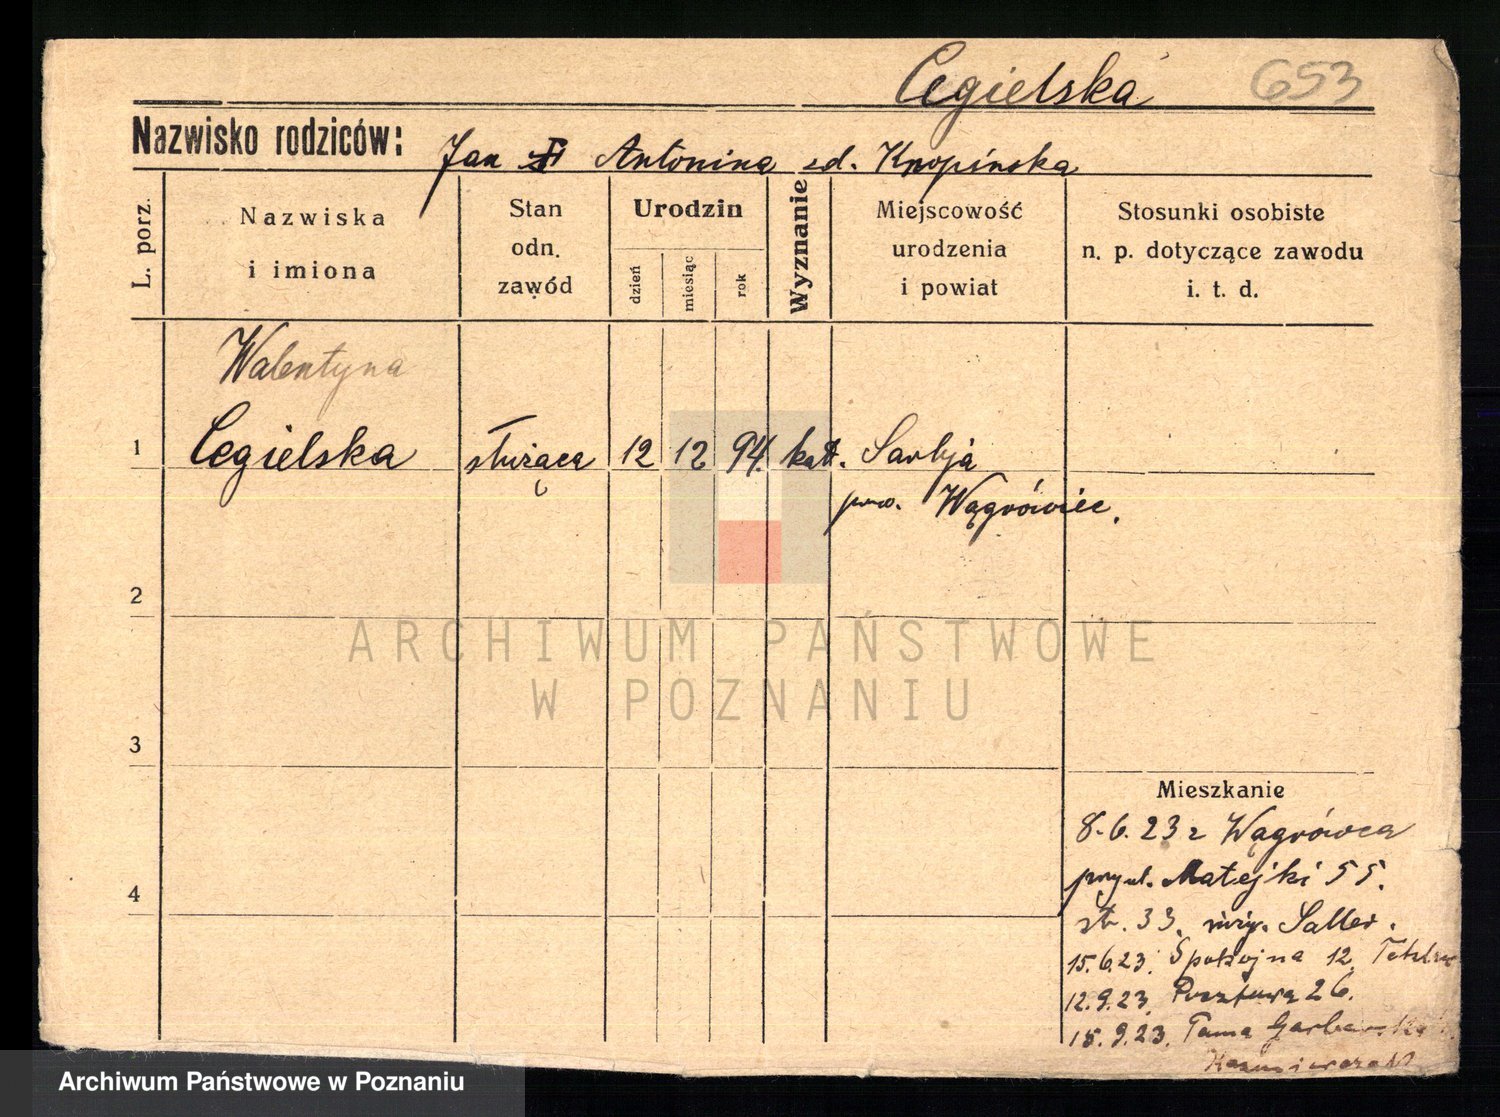 Cegielska 653
Nazwisko rodziców: Jan Antonina zd. Knopińska
L. porz.
Nazwiska
i imiona
Stan
odn.
zawód
Urodzin
dzień
miesiąc
rok
Wyznanie
Miejscowość
urodzenia
i powiat
Stosunki osobiste
n. p. dotyczące zawodu
i. t. d.
Walentyna
1 Cegielska służąca 12 12 94. kat. Sarbja
pow. Wągrówiec.
2
ARCHIWUM PAŃSTWOWE
W POZNANIU
3
Mieszkanie
8.6.23 z Wągrówca
4
Matejki 55.
33. Saller.
15.6.23. Spokojna 12.
12.9.23. Pocztowa 26.
15.9.23. Tama Garbarska
Kazmierczak
Archiwum Państwowe w Poznaniu